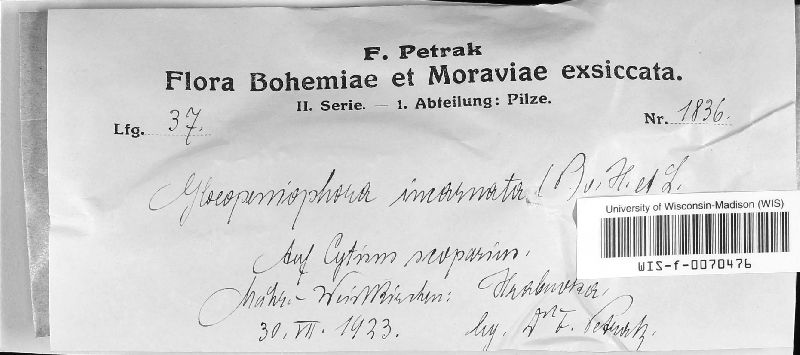 F. Petrak
Flora Bohemiae et Moraviae exsiccata.
II. Serie. — 1. Abteilung: Pilze.
Lfg. 37.
Nr. 1836.
Gloeopeniophora incarnata (P) v. H. et L.
University of Wisconsin-Madison (WIS)
WIS-f-0070476
Auf Cytisus scoparius.
Mähr.-Weisskirchen: Hrabuvka,
30. VII. 1923. lg. Dr F. Petrak.